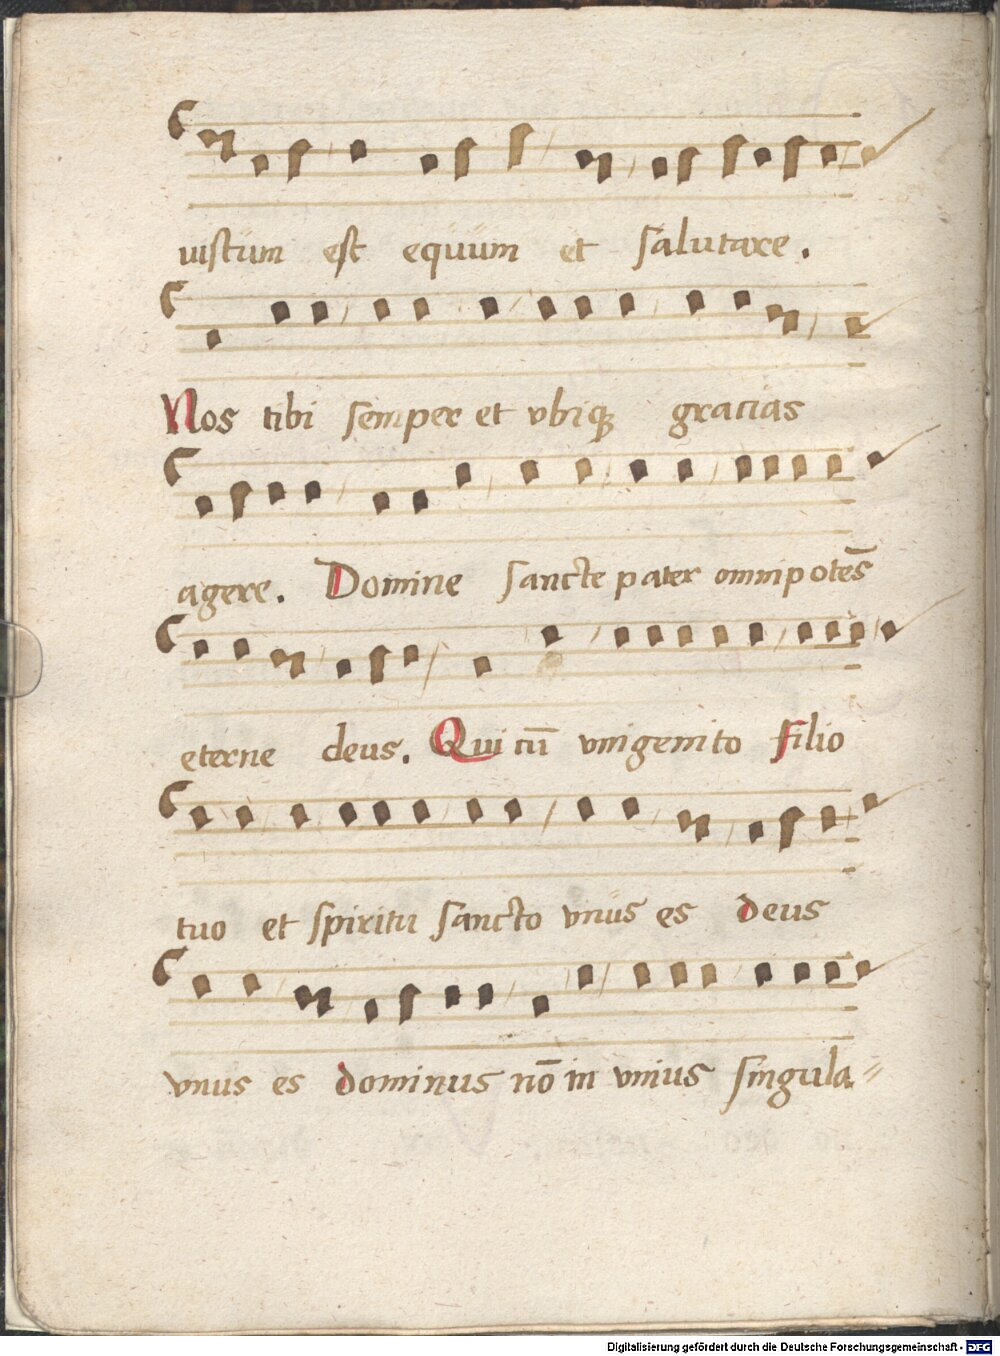 uistum est equum et salutare.
Nos tibi semper et vbiqꝫ gracias
agere. Domine sancte pater omnipotēs
eterne deus. Qui cū vnigenito filio
tuo et spiritu sancto vnus es deus
vnus es dominus nō in vnius singula⸗
Digitalisierung gefördert durch die Deutsche Forschungsgemeinschaft - DFG